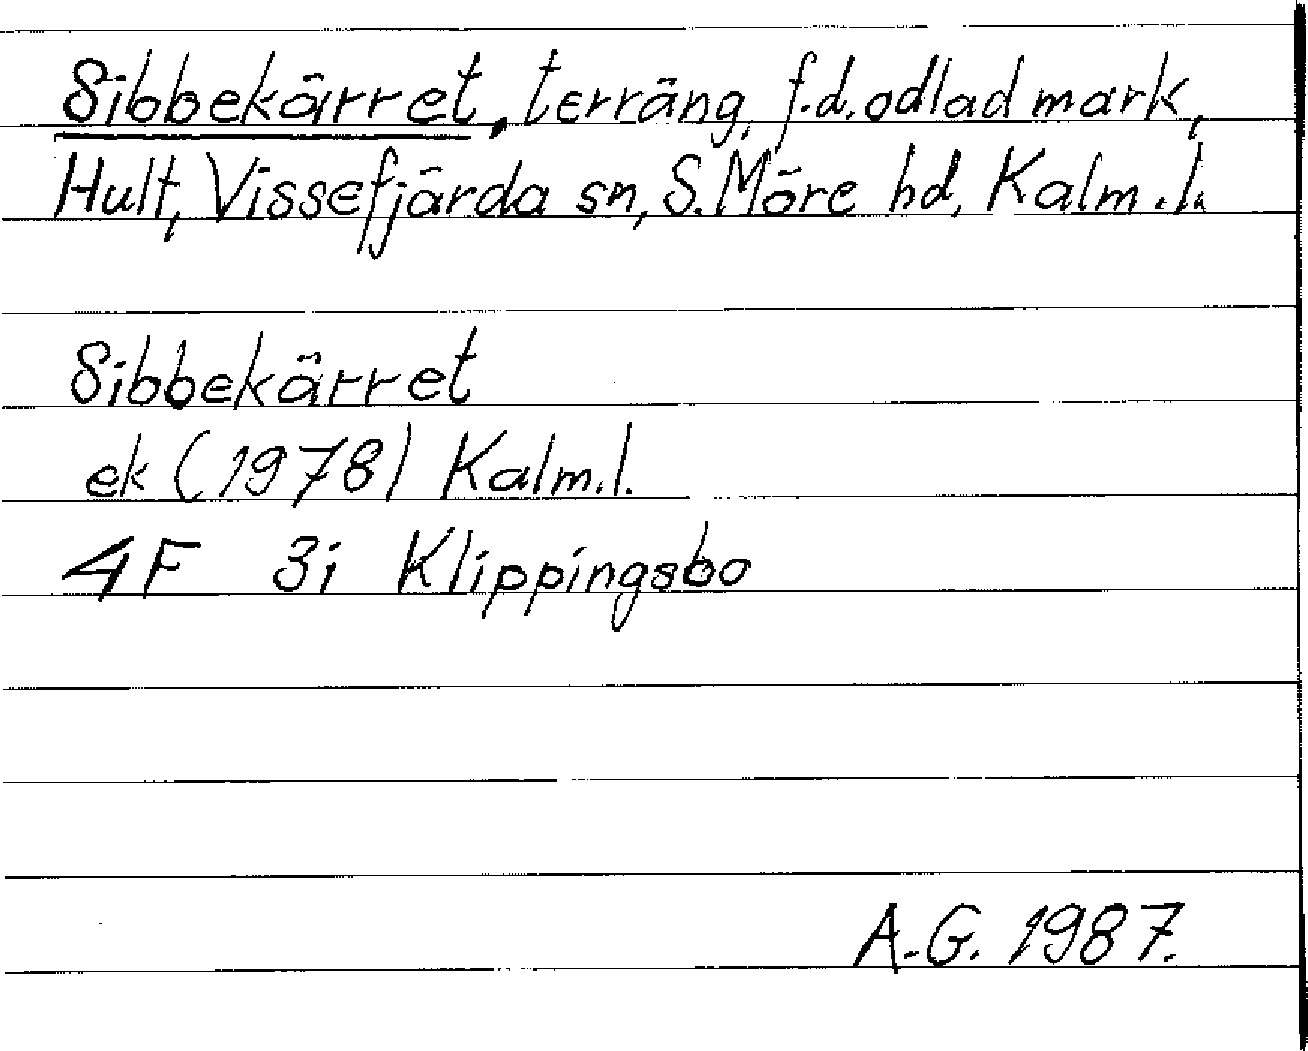 Sibbekärret, terräng, f.d. odlad mark,
Hult, Vissefjärda sn, S. Möre hd, Kalm.l.
Sibbekärret
ek (1978) Kalm.l.
4F 3i Klippingsbo
A.G. 1987.